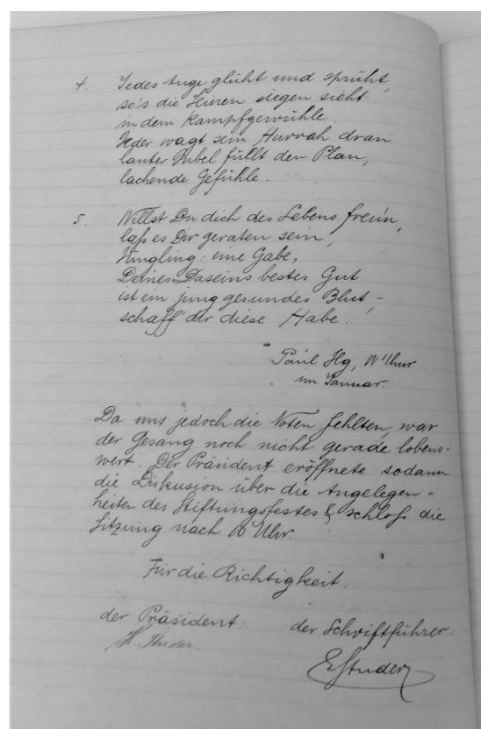 4. Jedes Auge glüht und sprüht,
so's die Seinen siegen sieht
in dem Kampfgewühle.
Jeder wagt sein Hurrah dran
lauter Jubel füllt den Plan,
lachende Gefühle.
5. Willst Du dich des Lebens freu'n,
laß es Dir geraten sein,
Jüngling: eine Gabe,
Deines Daseins bestes Gut
ist ein jung gesundes Blut –
schaff' dir diese Habe.
Paul Hg, W'thur
im Januar.
Da uns jedoch die Noten fehlten, war
der Gesang noch nicht gerade lobens-
wert. Der Präsident eröffnete sodann
die Diskusion über die Angelegen-
heiten des Stiftungsfestes & schloß die
Sitzung nach 10 Uhr.
Für die Richtigkeit.
der Präsident: der Schriftführer:
E Studer